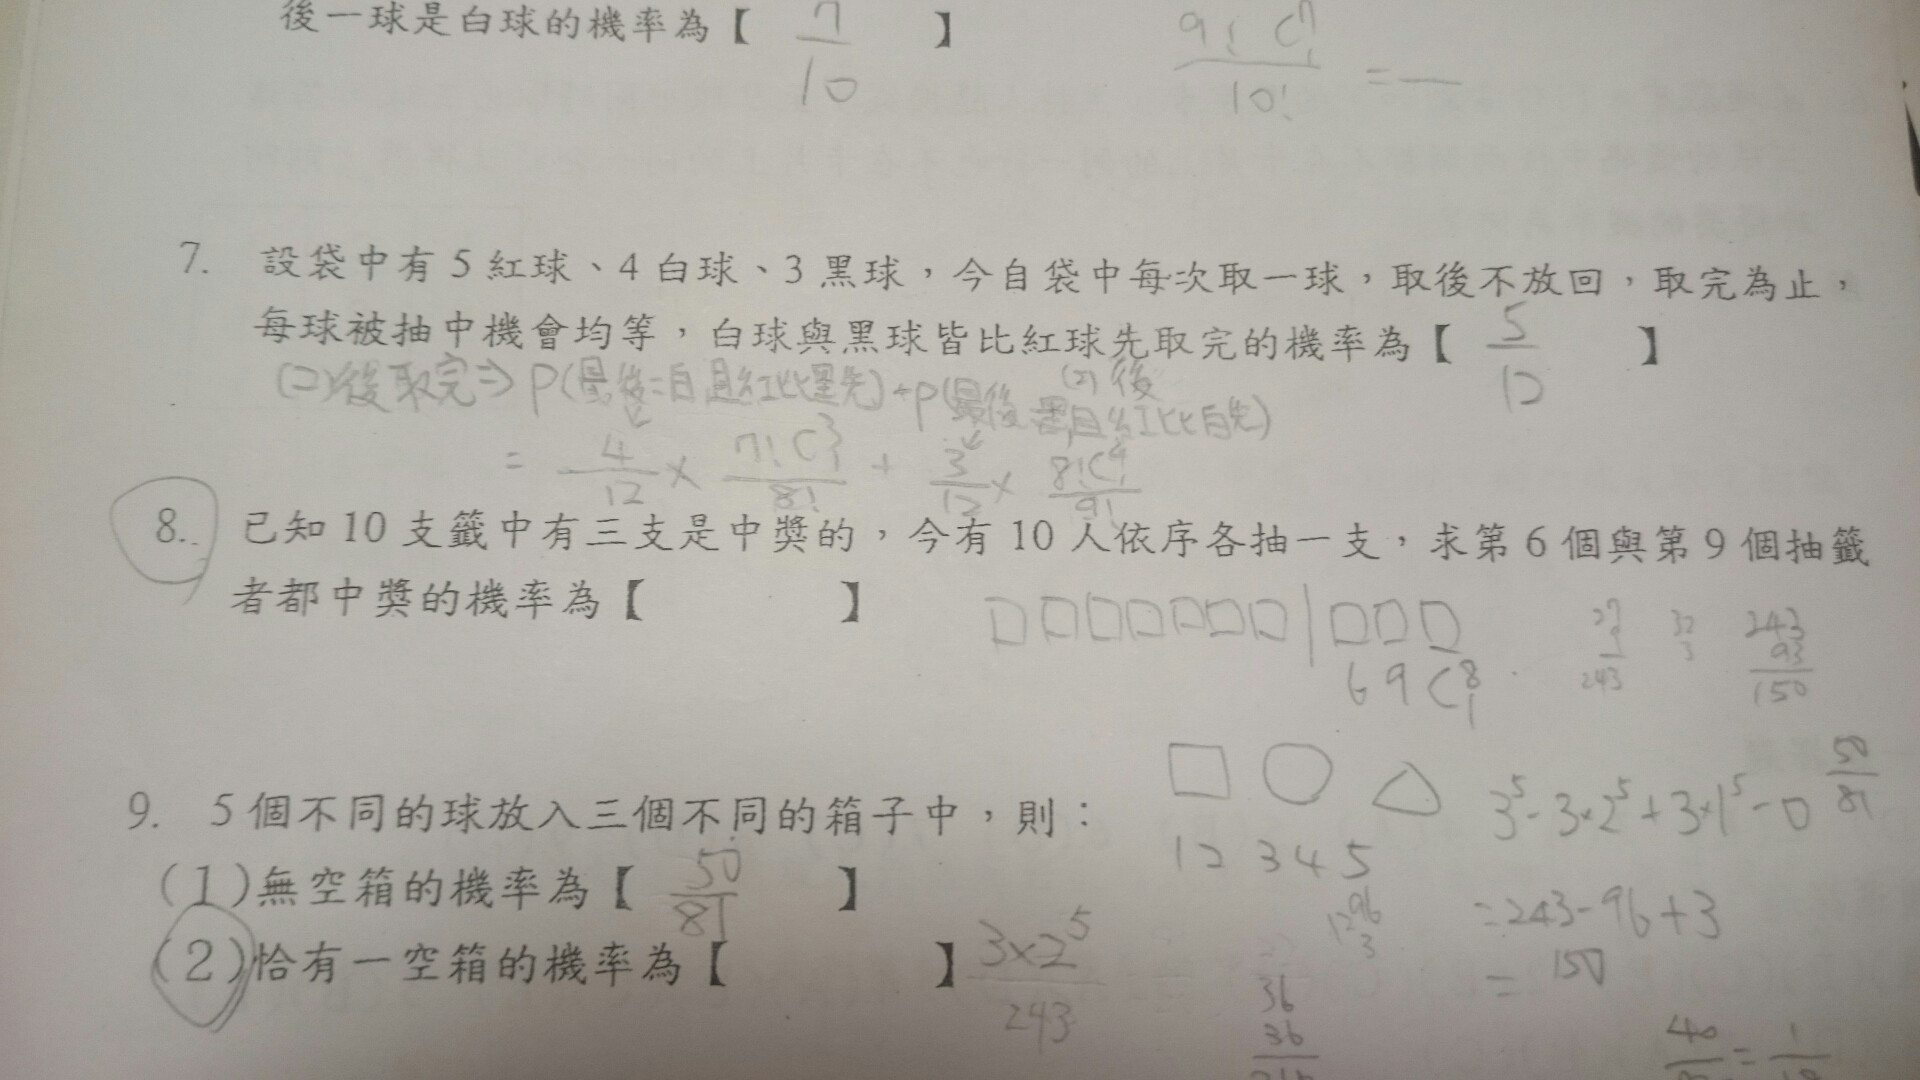 後一球是白球的機率為【 7/10 】 9! C⁷₁ / 10! = —
7. 設袋中有 5 紅球、4 白球、3 黑球，今自袋中每次取一球，取後不放回，取完為止，
每球被抽中機會均等，白球與黑球皆比紅球先取完的機率為【 5/12 】
(二)後取完⇒ P(最後=白且紅比黑先)+P(最後黑且紅比白先)
(2) 後
= 4/12 × 7! C³₁ / 8! + 3/12 × 8! C⁴₁ / 9!
8. 已知 10 支籤中有三支是中獎的，今有 10 人依序各抽一支，求第 6 個與第 9 個抽籤
者都中獎的機率為【 】
6 9 C⁸₁
27
243
32
3
243
93
150
9. 5 個不同的球放入三個不同的箱子中，則：
3⁵-3×2⁵+3×1⁵-0
50/81
1 2 3 4 5
(1)無空箱的機率為【 50/81 】
96
3
=243-96+3
(2)恰有一空箱的機率為【 】 3×2⁵ / 243
= 150
36
36
40